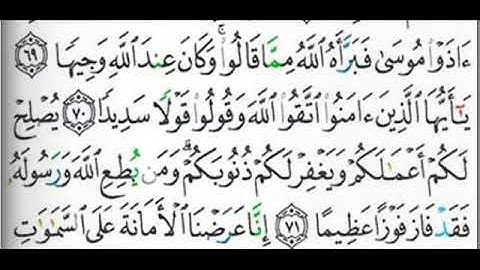 ءَاذَوْا۟ مُوسَىٰ فَبَرَّأَهُ ٱللَّهُ مِمَّا قَالُوا۟ۚ وَكَانَ عِندَ ٱللَّهِ وَجِيهًا ٦٩
يَٰٓأَيُّهَا ٱلَّذِينَ ءَامَنُوا۟ ٱتَّقُوا۟ ٱللَّهَ وَقُولُوا۟ قَوْلًا سَدِيدًا ٧٠ يُصْلِحْ
لَكُمْ أَعْمَٰلَكُمْ وَيَغْفِرْ لَكُمْ ذُنُوبَكُمْۗ وَمَن يُطِعِ ٱللَّهَ وَرَسُولَهُۥ
فَقَدْ فَازَ فَوْزًا عَظِيمًا ٧١ إِنَّا عَرَضْنَا ٱلْأَمَانَةَ عَلَى ٱلسَّمَٰوَٰتِ